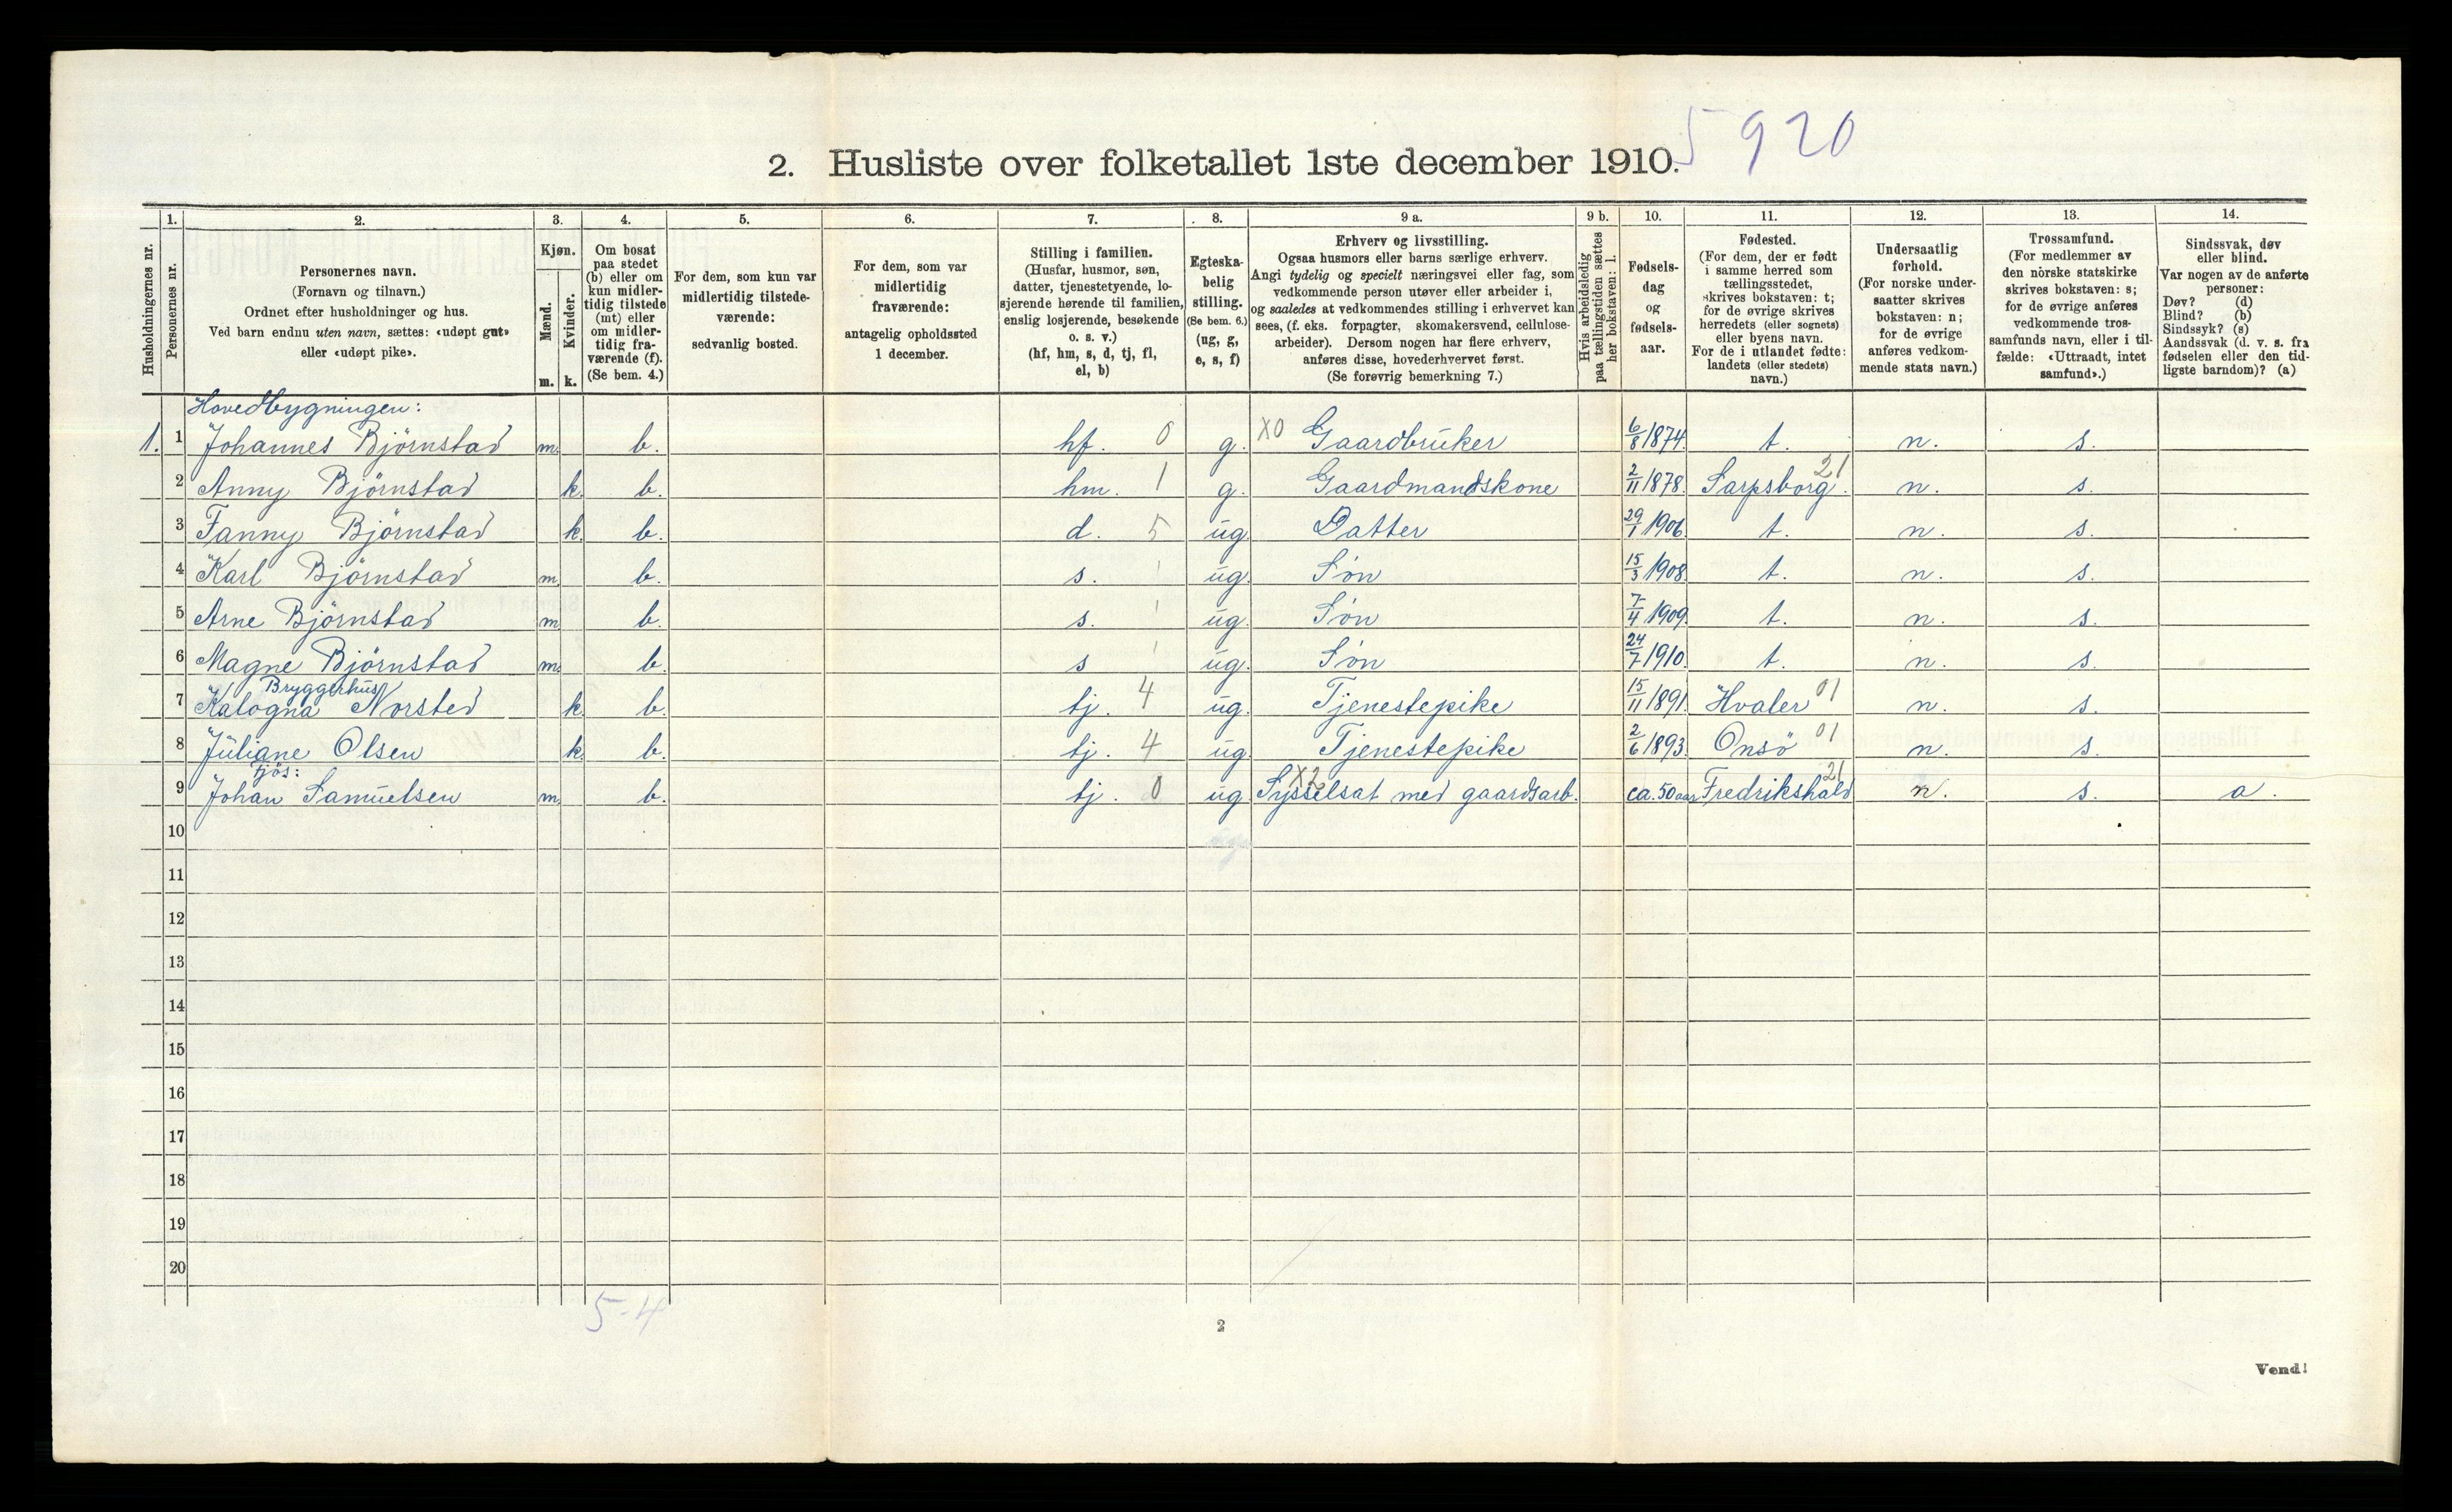 5 920
2. Husliste over folketallet 1ste december 1910.
Husholdningernes nr.
1. Personernes nr.
2. Personernes navn.
(Fornavn og tilnavn.)
Ordnet efter husholdninger og hus.
Ved barn endnu uten navn, sættes: «udøpt gut»
eller «udøpt pike».
3. Kjøn.
Mænd. m.
Kvinder. k.
4. Om bosat
paa stedet
(b) eller om
kun midler-
tidig tilstede
(mt) eller
om midler-
tidig fra-
værende (f).
(Se bem. 4.)
5. For dem, som kun var
midlertidig tilstede-
værende:
sedvanlig bosted.
6. For dem, som var
midlertidig
fraværende:
antagelig opholdssted
1 december.
7. Stilling i familien.
(Husfar, husmor, søn,
datter, tjenestetyende, lo-
sjerende hørende til familien,
enslig losjerende, besøkende
o. s. v.)
(hf, hm, s, d, tj, fl,
el, b)
8. Egteska-
belig
stilling.
(Se bem. 6.)
(ug, g,
e, s, f)
9 a. Erhverv og livsstilling.
Ogsaa husmors eller barns særlige erhverv.
Angi tydelig og specielt næringsvei eller fag, som
vedkommende person utøver eller arbeider i,
og saaledes at vedkommendes stilling i erhvervet kan
sees, (f. eks. forpagter, skomakersvend, cellulose-
arbeider). Dersom nogen har flere erhverv,
anføres disse, hovederhvervet først.
(Se forøvrig bemerkning 7.)
9 b. Hvis arbeidsledig
paa tællingstiden sættes
her bokstaven: l.
10. Fødsels-
dag
og
fødsels-
aar.
11. Fødested.
(For dem, der er født
i samme herred som
tællingsstedet,
skrives bokstaven: t;
for de øvrige skrives
herredets (eller sognets)
eller byens navn.
For de i utlandet fødte:
landets (eller stedets)
navn.)
12. Undersaatlig
forhold.
(For norske under-
saatter skrives
bokstaven: n;
for de øvrige
anføres vedkom-
mende stats navn.)
13. Trossamfund.
(For medlemmer av
den norske statskirke
skrives bokstaven: s;
for de øvrige anføres
vedkommende tros-
samfunds navn, eller i til-
fælde: «Uttraadt, intet
samfund».)
14. Sindssvak, døv
eller blind.
Var nogen av de anførte
personer:
Døv? (d)
Blind? (b)
Sindssyk? (s)
Aandssvak (d. v. s. fra
fødselen eller den tid-
ligste barndom)? (a)
Hovedbygningen:
1. 1 Johannes Björnstad m. b. hf. 0 g. X0 Gaardbruker 6/8 1874. t. n. s.
2 Anny Björnstad k. b. hm. 1 g. Gaardmandskone 2/11 1878. Sarpsborg. 21 n. s.
3 Fanny Björnstad k. b. d. 5 ug. Datter 29/1 1906. t. n. s.
4 Karl Björnstad m. b. s. ug. Søn 15/3 1908. t. n. s.
5 Arne Björnstad m. b. s. ug. Søn 7/4 1909. t. n. s.
6 Magne Björnstad m. b. s ug. Søn 24/7 1910. t. n. s.
Bryggerhus
7 Kalogna Norsted k. b. tj. 4 ug. Tjenestepike 15/11 1891. Hvaler 01 n. s.
8 Juliane Olsen k. b. tj. 4 ug. Tjenestepike 2/6 1893. Onsö 01 n. s.
Fjös:
9 Johan Samuelsen m. b. tj. 0 ug X2 Sysselsat med gaardsarb. ca. 50 aar Fredrikshald 21 n. s. a.
10
11
12
13
14
15
16
17
18
19
20
5-4
2
Vend!